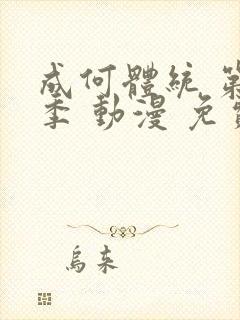 成何體統 第
季 動漫 免費
烏来